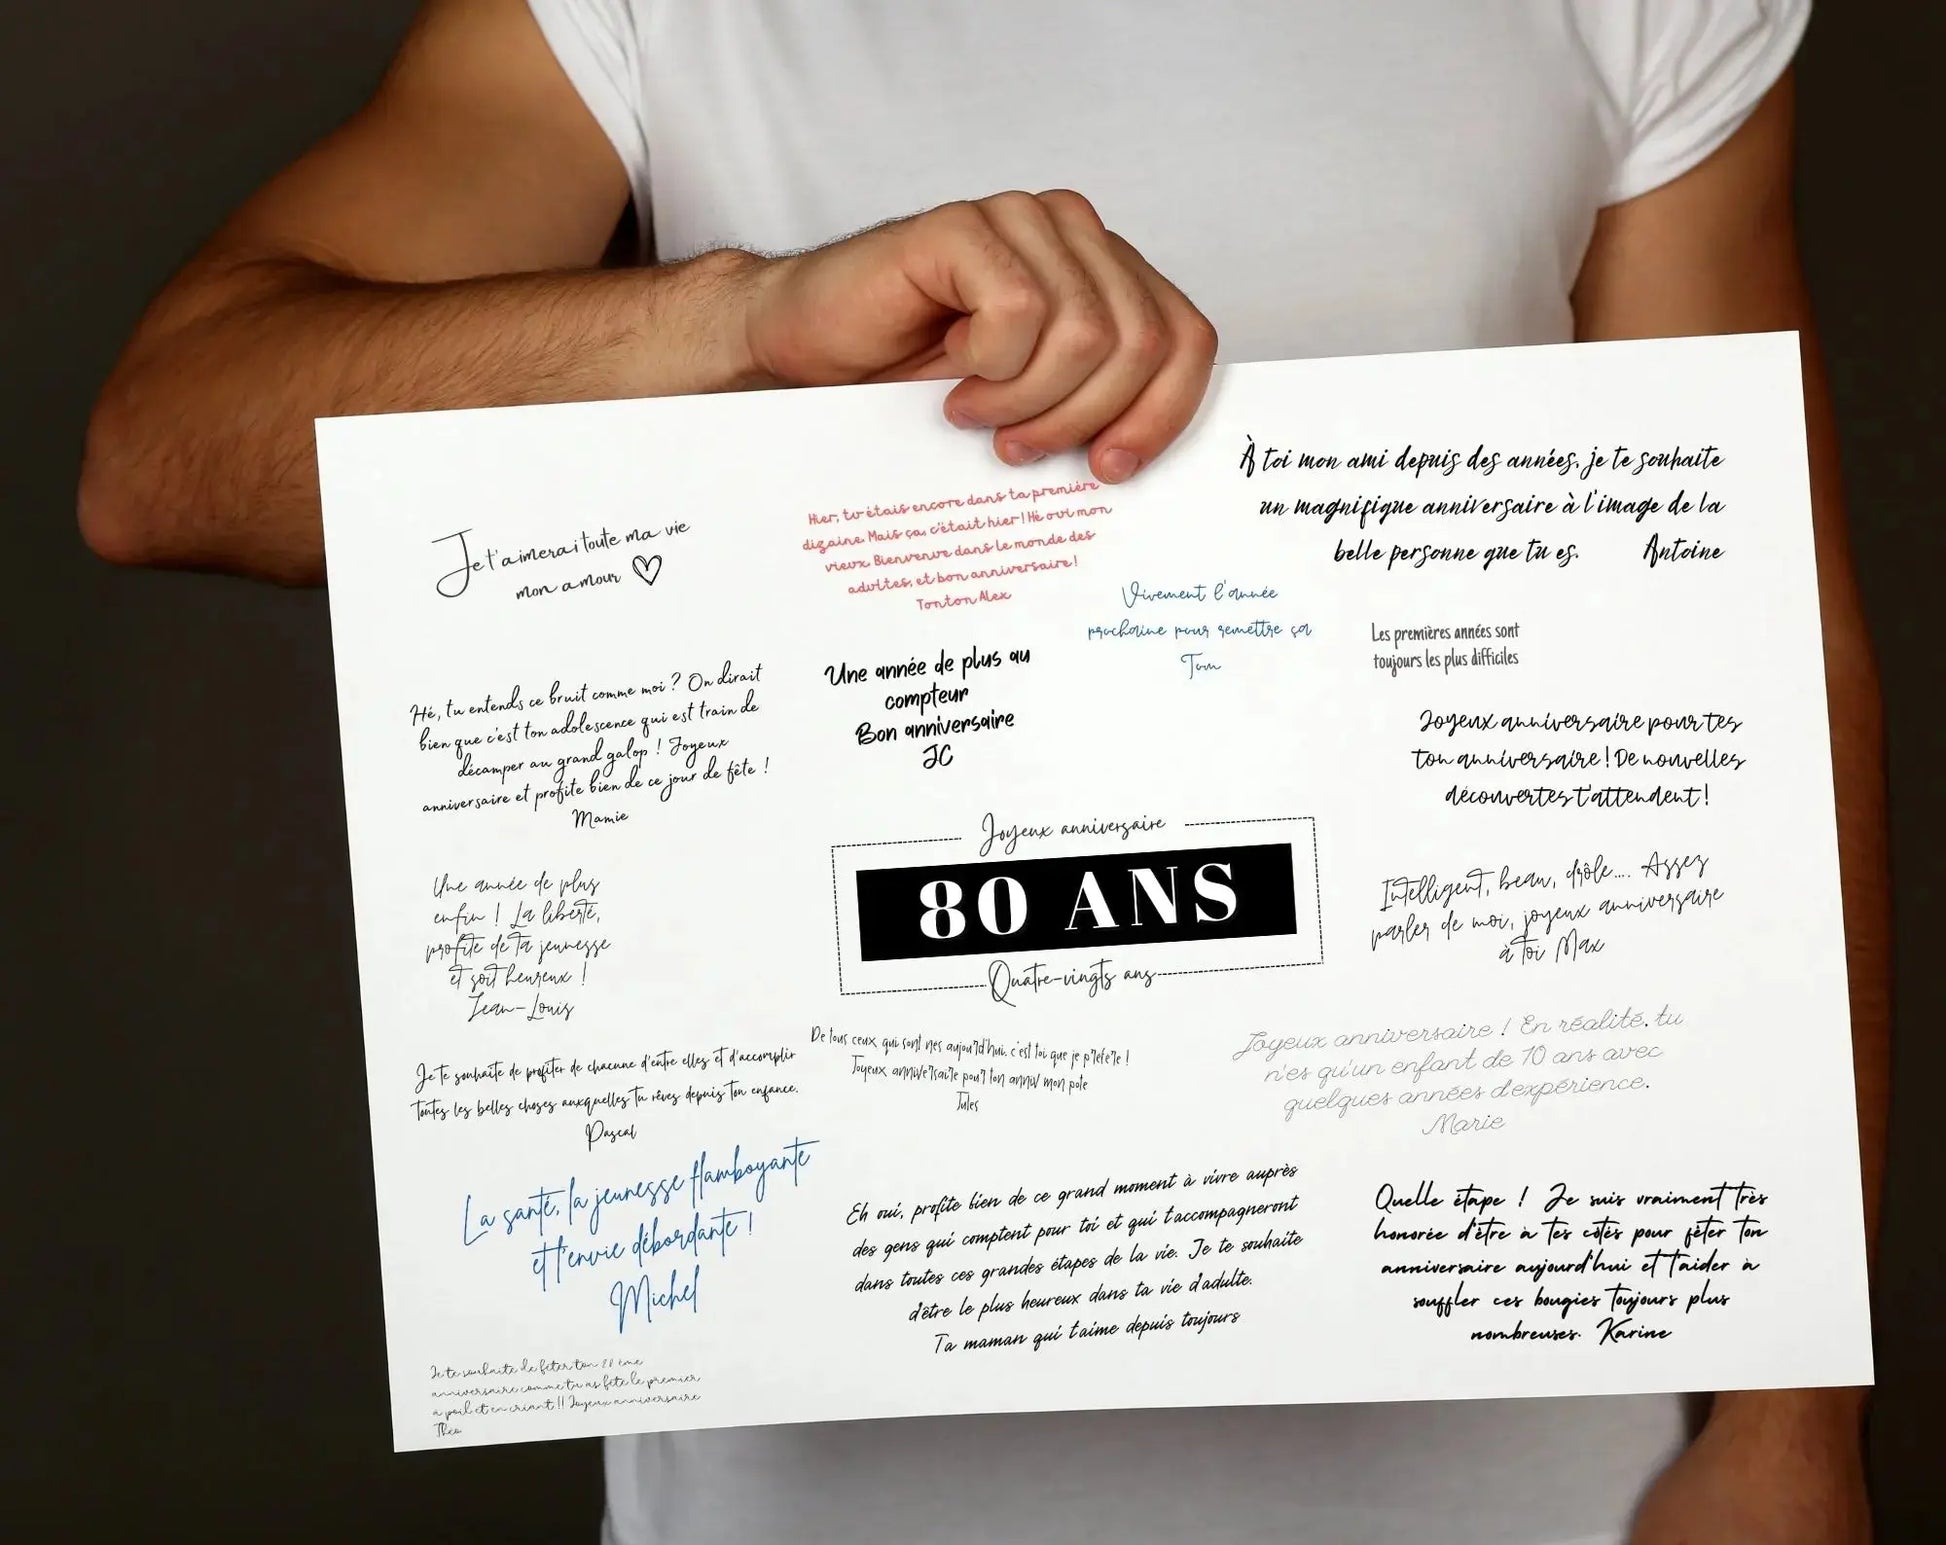 Je t'aimerai toute ma vie
mon amour
Hier, tu étais encore dans ta première
dizaine. Mais ça, c'était hier ! Hé oui mon
vieux. Bienvenue dans le monde des
adultes, et bon anniversaire !
Tonton Alex
À toi mon ami depuis des années, je te souhaite
un magnifique anniversaire à l'image de la
belle personne que tu es. Antoine
Vivement l'année
prochaine pour remettre ça
Tom
Les premières années sont
toujours les plus difficiles
Hé, tu entends ce bruit comme moi ? On dirait
bien que c'est ton adolescence qui est train de
décamper au grand galop ! Joyeux
anniversaire et profite bien de ce jour de fête !
Mamie
Une année de plus au
compteur
Bon anniversaire
JC
Joyeux anniversaire pour tes
ton anniversaire ! De nouvelles
découvertes t'attendent !
Joyeux anniversaire
80 ANS
Quatre-vingts ans
Une année de plus
enfin ! La liberté,
profite de ta jeunesse
et soit heureux !
Jean-Louis
Intelligent, beau, drôle.... Assez
parler de moi, joyeux anniversaire
à toi Max
Je te souhaite de profiter de chacune d'entre elles et d'accomplir
toutes les belles choses auxquelles tu rêves depuis ton enfance.
Pascal
De tous ceux qui sont nés aujourd'hui, c'est toi que je préfère !
Joyeux anniversaire pour ton anniv mon pote
Jules
Joyeux anniversaire ! En réalité, tu
n'es qu'un enfant de 10 ans avec
quelques années d'expérience.
Marie
La santé, la jeunesse flamboyante
et l'envie débordante !
Michel
Eh oui, profite bien de ce grand moment à vivre auprès
des gens qui comptent pour toi et qui t'accompagneront
dans toutes ces grandes étapes de la vie. Je te souhaite
d'être le plus heureux dans ta vie d'adulte.
Ta maman qui t'aime depuis toujours
Quelle étape ! Je suis vraiment très
honorée d'être à tes côtés pour fêter ton
anniversaire aujourd'hui et t'aider à
souffler ces bougies toujours plus
nombreuses. Karine
Je te souhaite de fêter ton ème
anniversaire comme tu as fêté le premier
à poil et en criant !! Joyeux anniversaire
Théo